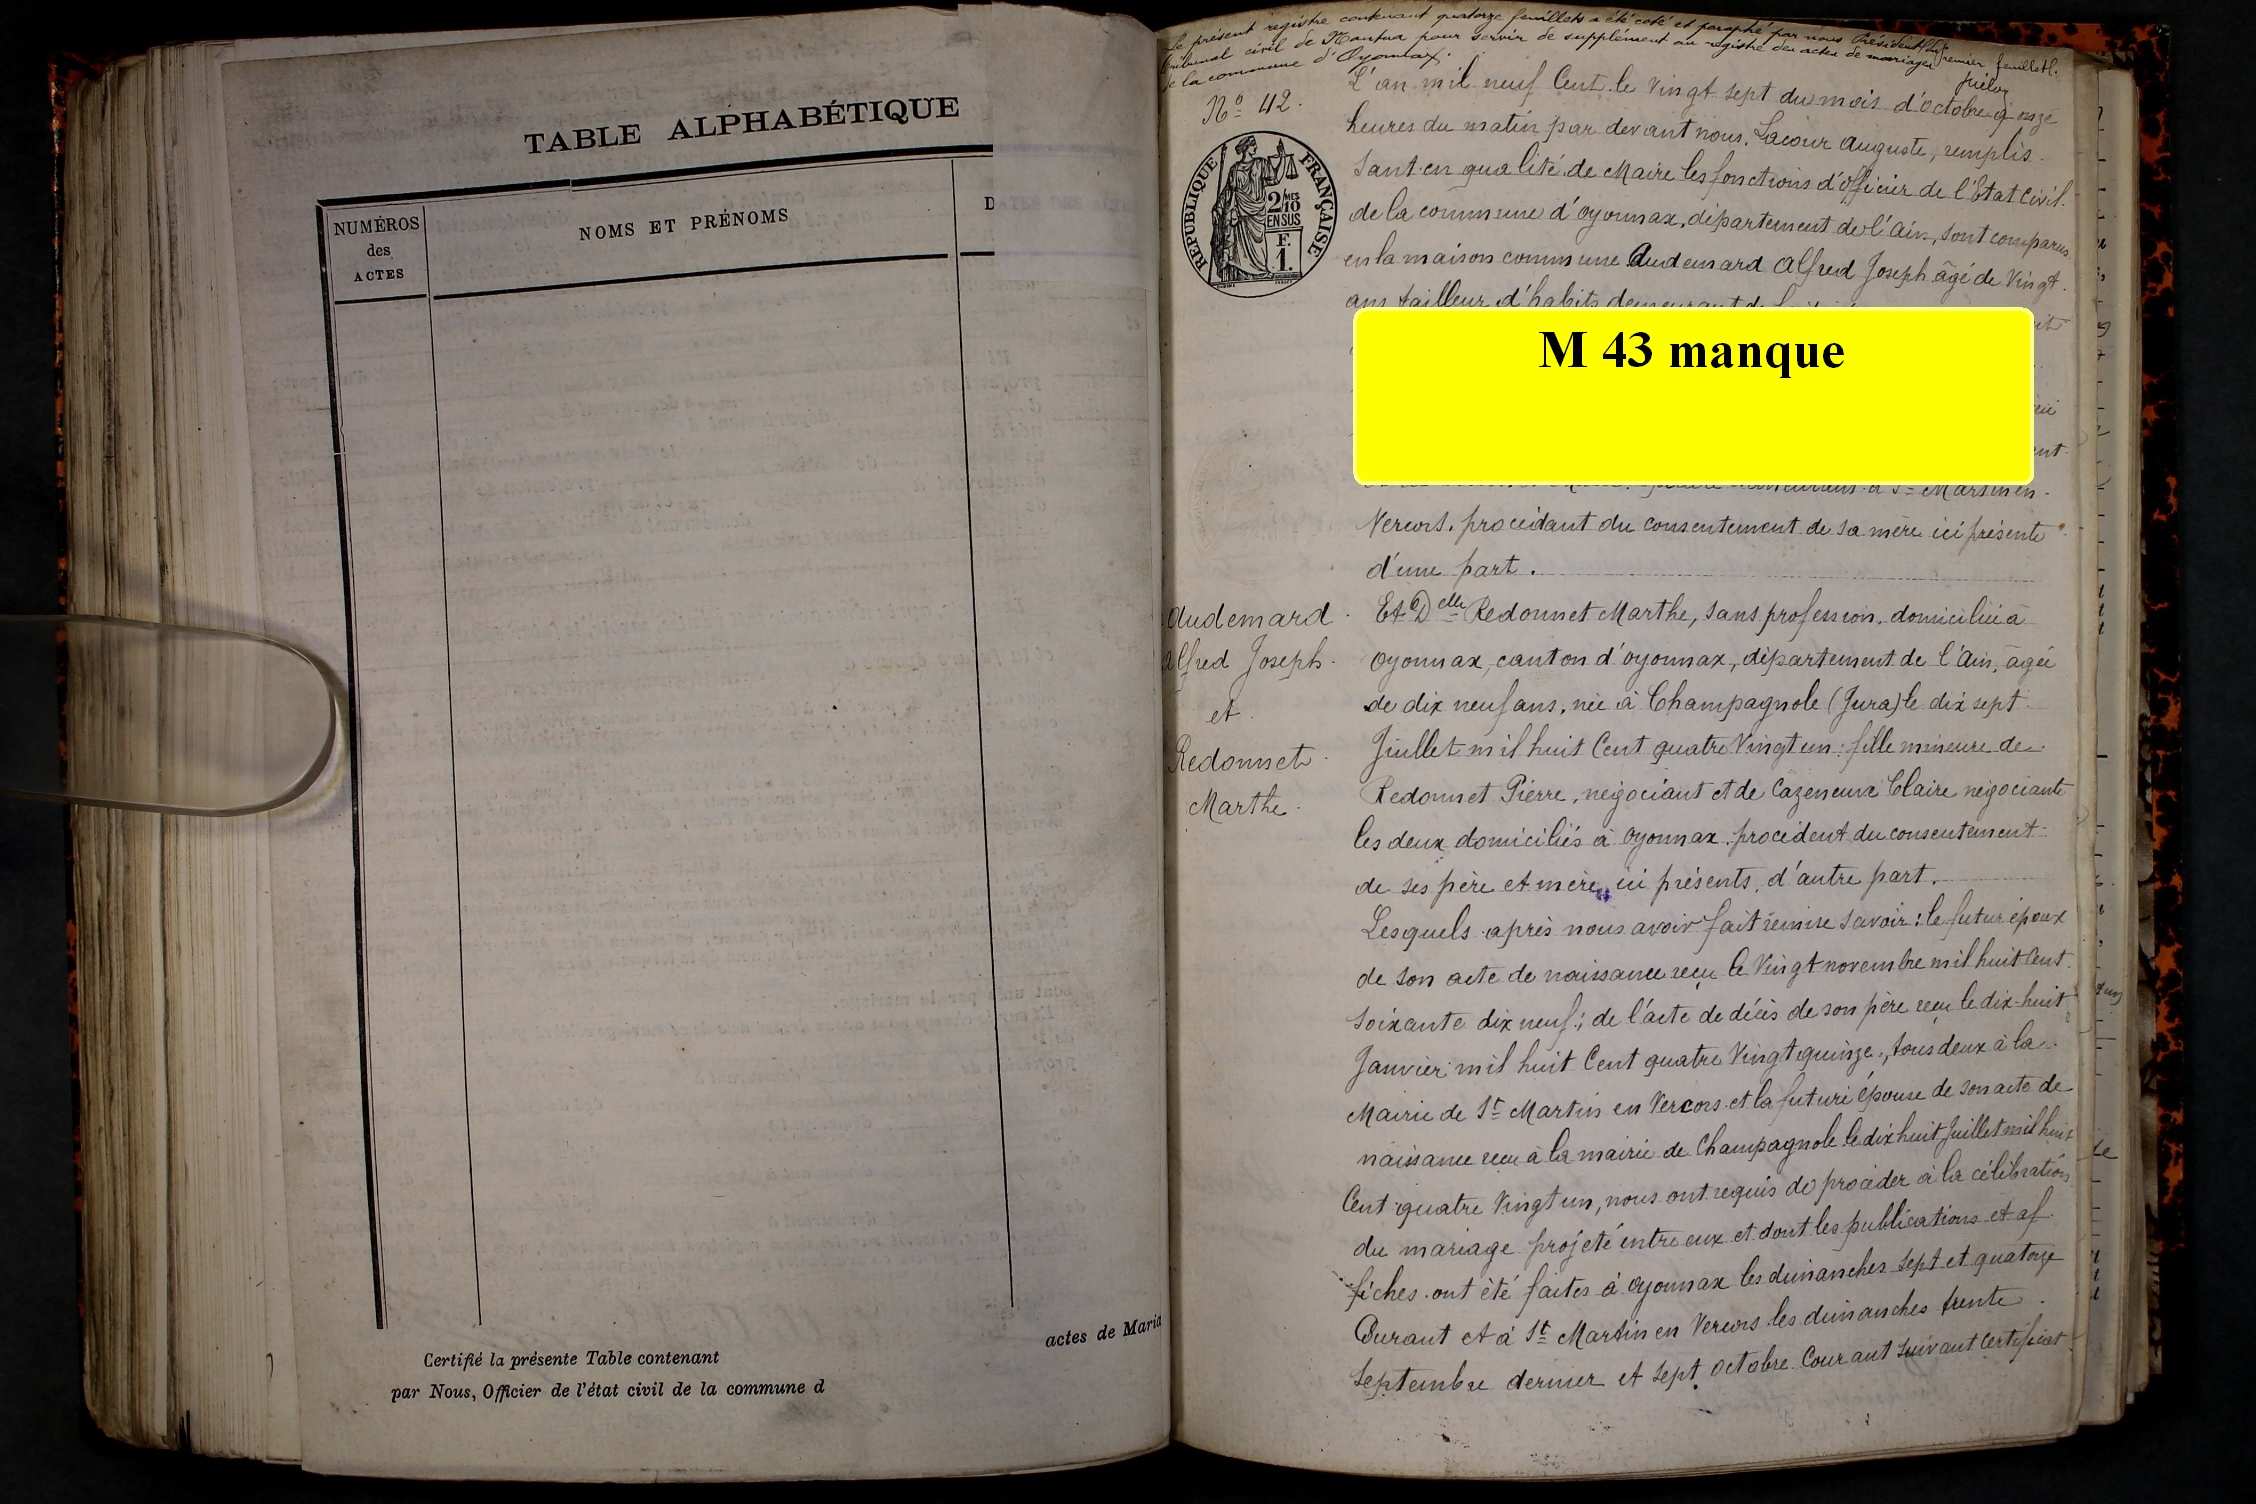 TABLE ALPHABÉTIQUE
NUMÉROS
des
ACTES
NOMS ET PRÉNOMS
D
Certifié la présente Table contenant
actes de Maria
par Nous, Officier de l'état civil de la commune d
Le présent registre contenant quatorze feuillets a été coté et paraphé par nous Président du
Tribunal civil de Nantua pour servir de supplément au registre des actes de mariages
de la commune d'Oyonnax.
Premier feuillet.
Nº 42.
RÉPUBLIQUE FRANÇAISE
2/10
EN SUS
F.
1.
L'an mil neuf Cent le Vingt sept du mois d'Octobre à onze
heures du matin par devant nous, Lacour Auguste, remplis
sant en qualité de Maire les fonctions d'Officier de l'Etat Civil
de la commune d'Oyonnax, département de l'Ain, sont comparus
en la maison commune Audemard Alfred Joseph âgé de Vingt
ans tailleur d'habits demeurant
M 43 manque
à St Martin en
Vercors. procédant du consentement de sa mère ici présente
d'une part.
Audemard
Alfred Joseph
et
Redonnet
Marthe.
Et Delle Redonnet Marthe, sans profession, domiciliée à
Oyonnax, canton d'Oyonnax, département de l'Ain, âgée
de dix neuf ans, née à Champagnole (Jura) le dix sept
Juillet mil huit Cent quatre Vingt un : fille mineure de
Redonnet Pierre, négociant et de Cazeneuve Claire négociante
les deux domiciliés à Oyonnax. procédent du consentement
de ses père et mère ici présents, d'autre part.
Lesquels après nous avoir fait remise savoir : le futur époux
de son acte de naissance reçu le Vingt novembre mil huit Cent
soixante dix neuf; de l'acte de décès de son père reçu le dix-huit
Janvier mil huit Cent quatre Vingt quinze, tous deux à la
Mairie de St Martin en Vercors et la future épouse de son acte de
naissance reçu à la mairie de Champagnole le dix huit Juillet mil huit
Cent quatre Vingt un, nous ont requis de procéder à la célébration
du mariage projeté entre eux et dont les publications et af
fiches ont été faites à Oyonnax les dimanches sept et quatorze
Courant et à St Martin en Vercors les dimanches trente
Septembre dernier et sept Octobre Courant suivant certificat